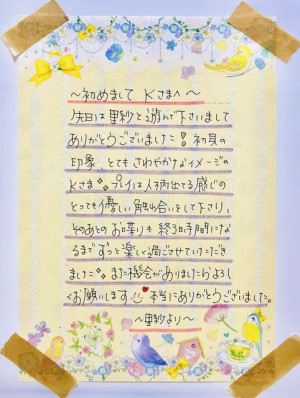 〜初めまして Kさまへ〜
先日は里紗と遊んで下さいまして
ありがとうございました！初見の
印象、とてもさわやかなイメージの
Kさま プレイは人柄出てる感じの
とっても優しい触れ合いをして下さり、
そのあとのお喋りも終る時間にな
るまでずっと楽しく過ごさせていただき
ました また機会がありましたらよろし
くお願いします 本当にありがとうございました。
〜里紗より〜